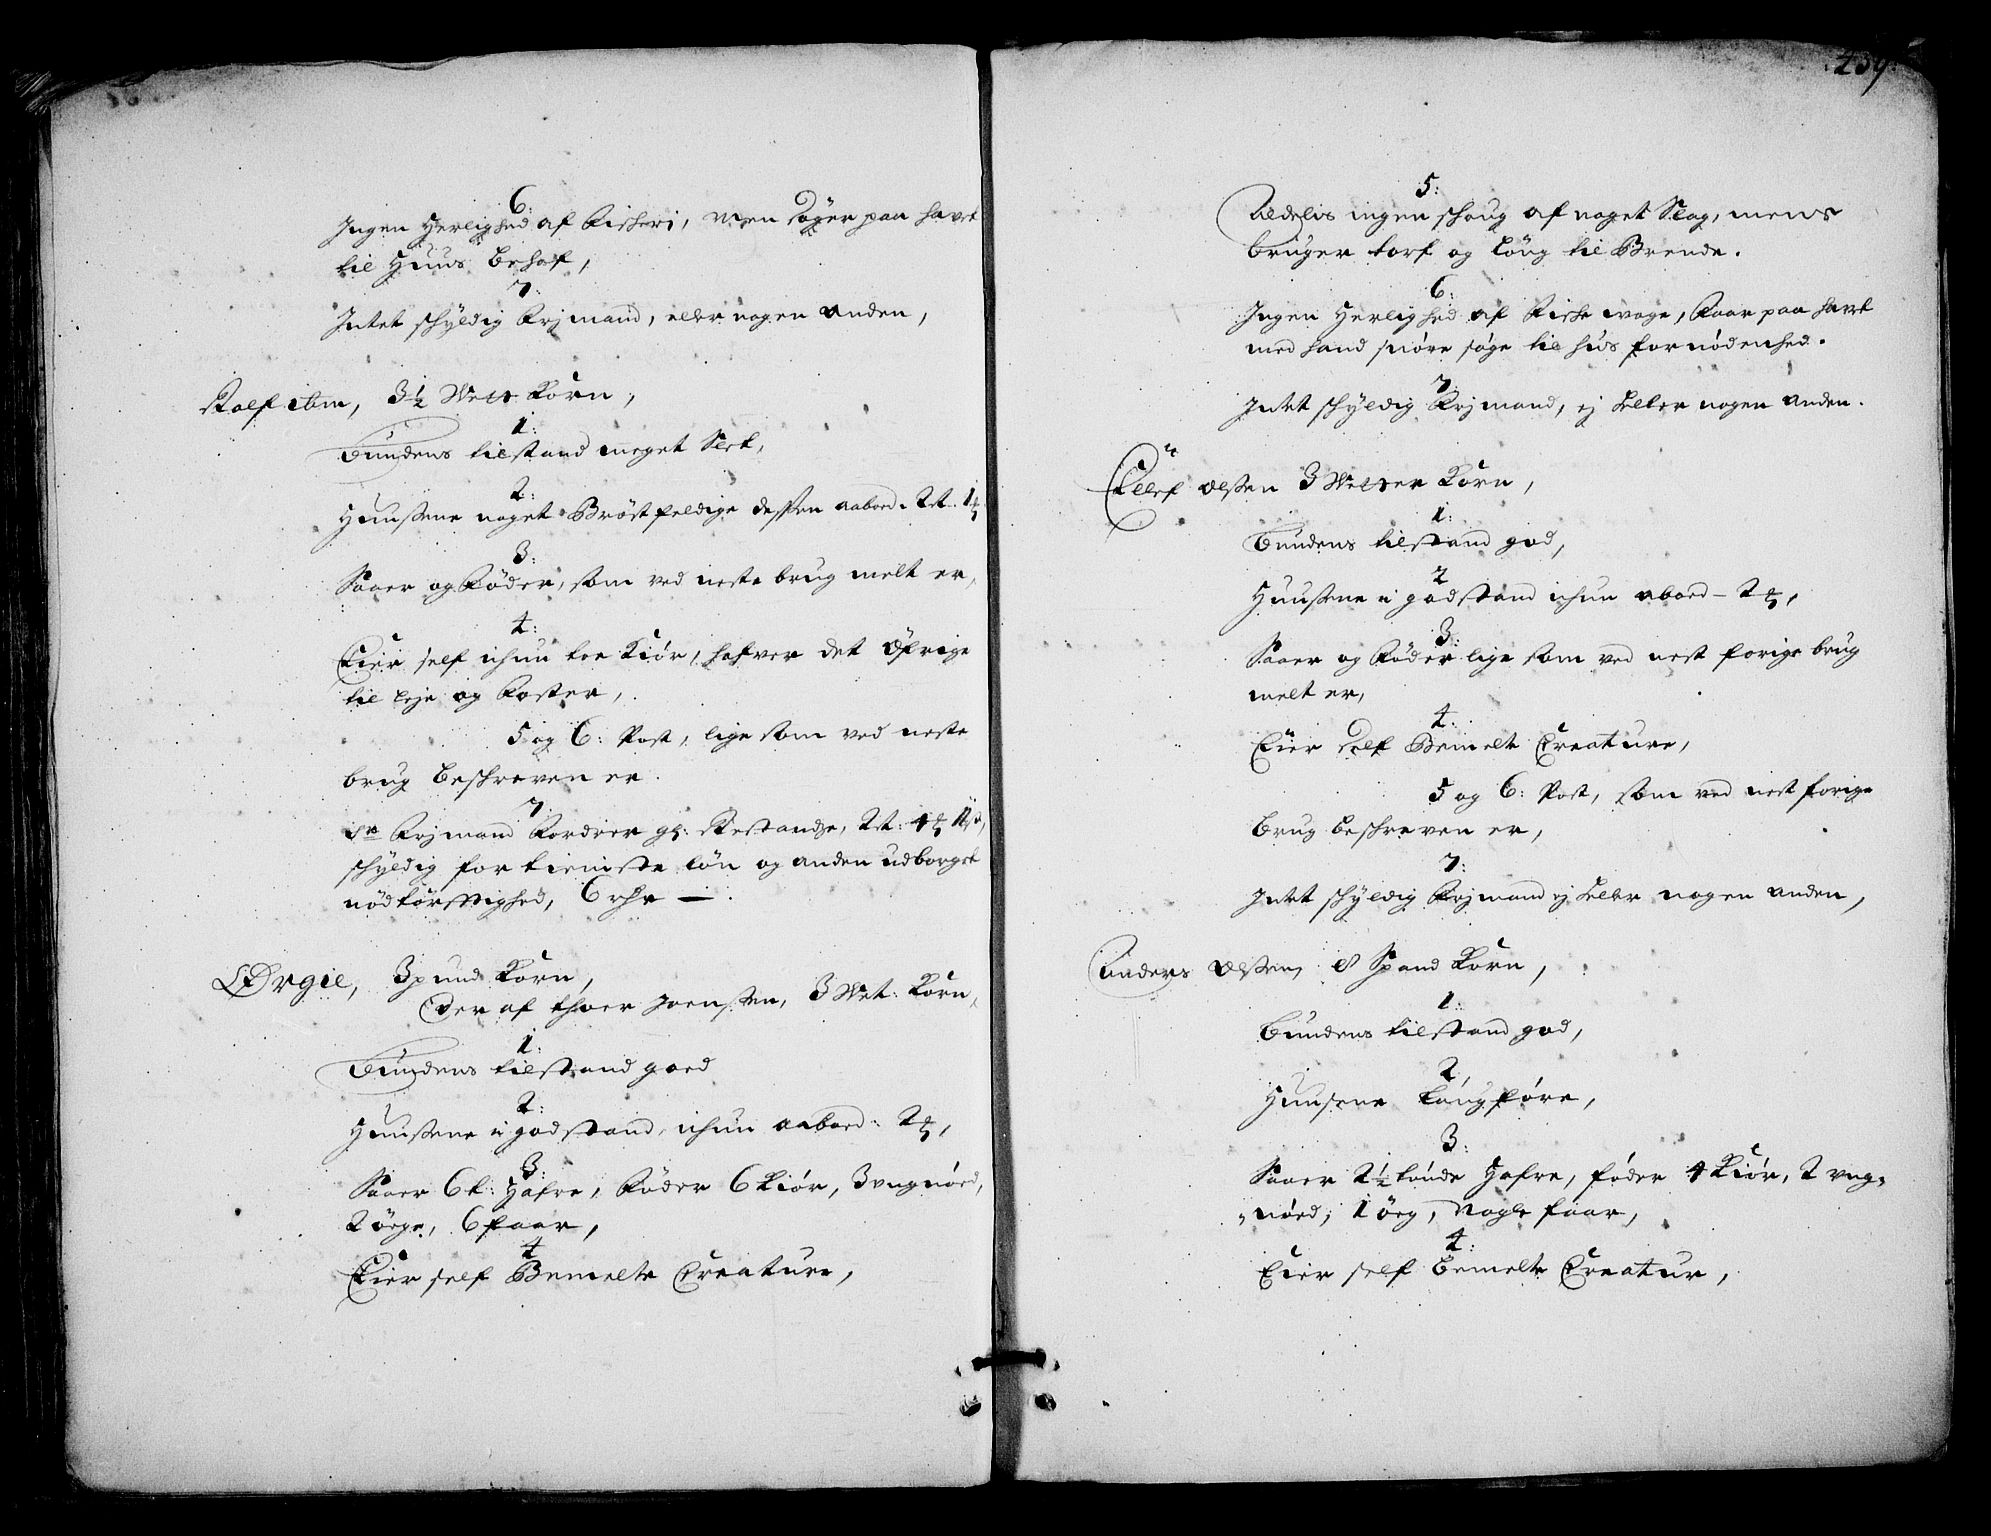 6:
Ingen Herlighed af Fischeri, men søger paa havet
til Huus behof,
7:
Intet schyldig Fojmand, eller nogen anden,
Rolf ibm, 3½ Wett Korn,
1:
Bundens tilstand meget Slet,
2:
Huusene noget Brøstfeldige dessen aaboed. Rt.
3:
Saaer og Føder, som ved neste brug melt er,
4:
Eier self ichun toe Kiør, hafver det Øfrige
til leje og Foster,
5 og 6: Post, lige som ved neste
brug beschreven er.
7:
Sr Fojmand Fordrer gl: Restandse, Rt:
schyldig for tieniste løn og anden udborget
nødtørfftighed, 6 rdr —
Ørgie, 3 pund Korn,
Der af thoer Joensen, 3 Wet: Korn,
1:
Bundens tilstand goed
2:
Huusene i god stand, ichun aaboed:
3:
Saaer 6 t: Hafre, Føder 6 Kiør, 3 ungnøed,
2 øege, 6 faar,
4
Eier self Bemelte Creature,
239
5:
Aldelis ingen schoug af noget Slag, mens
bruger torf og löng til Brende.
6:
Ingen Herlighed af Fische woge, Faar paa havet
med hand snøre søge til huus fornødenhed.
7
Intet schyldig Fojmand, ej heller nogen anden.
Ellef Olsen 3 Wetter Korn,
1:
Bundens tilstand god,
2
Huusene i god stand ichun aboed –
3:
Saaer og Føder lige som ved nest forige brug
melt er,
4:
Eier self Bemelte Creature,
5 og 6: Post, som ved nest forige
brug beschreven er,
7:
Intet schyldig Fojmand ej heller nogen anden,
Anders Olsen, 8 Spand Korn,
1:
Bundens tilstand god,
2,
Huusene longføre,
3:
Saaer 2½ tønde Hafre, føder 4 Kiør, 2 ung-
nøed, 1 øeg, Nogle faar,
4:
Eier self bemelte Creatur,